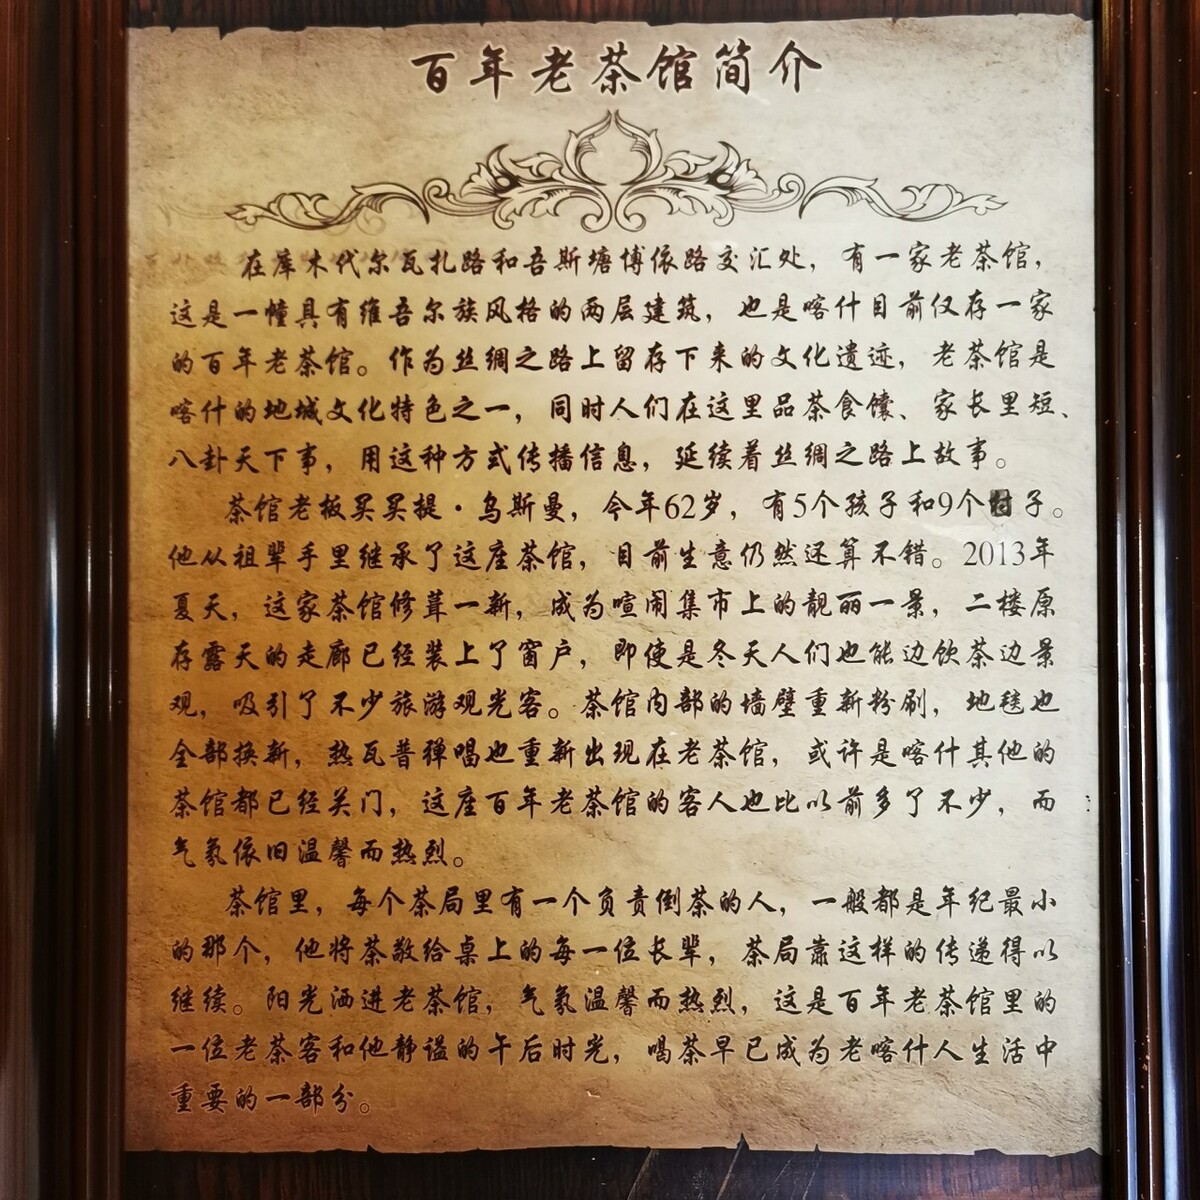 百年老茶馆简介
在库木代尔瓦扎路和吾斯塘博依路交汇处，有一家老茶馆，
这是一幢具有维吾尔族风格的两层建筑，也是喀什目前仅存一家
的百年老茶馆。作为丝绸之路上留存下来的文化遗迹，老茶馆是
喀什的地域文化特色之一，同时人们在这里品茶食馕、家长里短、
八卦天下事，用这种方式传播信息，延续着丝绸之路上故事。
茶馆老板买买提·乌斯曼，今年62岁，有5个孩子和9个子。
他从祖辈手里继承了这座茶馆，目前生意仍然还算不错。2013年
夏天，这家茶馆修葺一新，成为喧闹集市上的靓丽一景，二楼原
存露天的走廊已经装上了窗户，即使是冬天人们也能边饮茶边景
观，吸引了不少旅游观光客。茶馆内部的墙壁重新粉刷，地毯也
全部换新，热瓦普弹唱也重新出现在老茶馆，或许是喀什其他的
茶馆都已经关门，这座百年老茶馆的客人也比以前多了不少，而
气氛依旧温馨而热烈。
茶馆里，每个茶局里有一个负责倒茶的人，一般都是年纪最小
的那个，他将茶敬给桌上的每一位长辈，茶局靠这样的传递得以
继续。阳光洒进老茶馆，气氛温馨而热烈，这是百年老茶馆里的
一位老茶客和他静谧的午后时光，喝茶早已成为老喀什人生活中
重要的一部分。